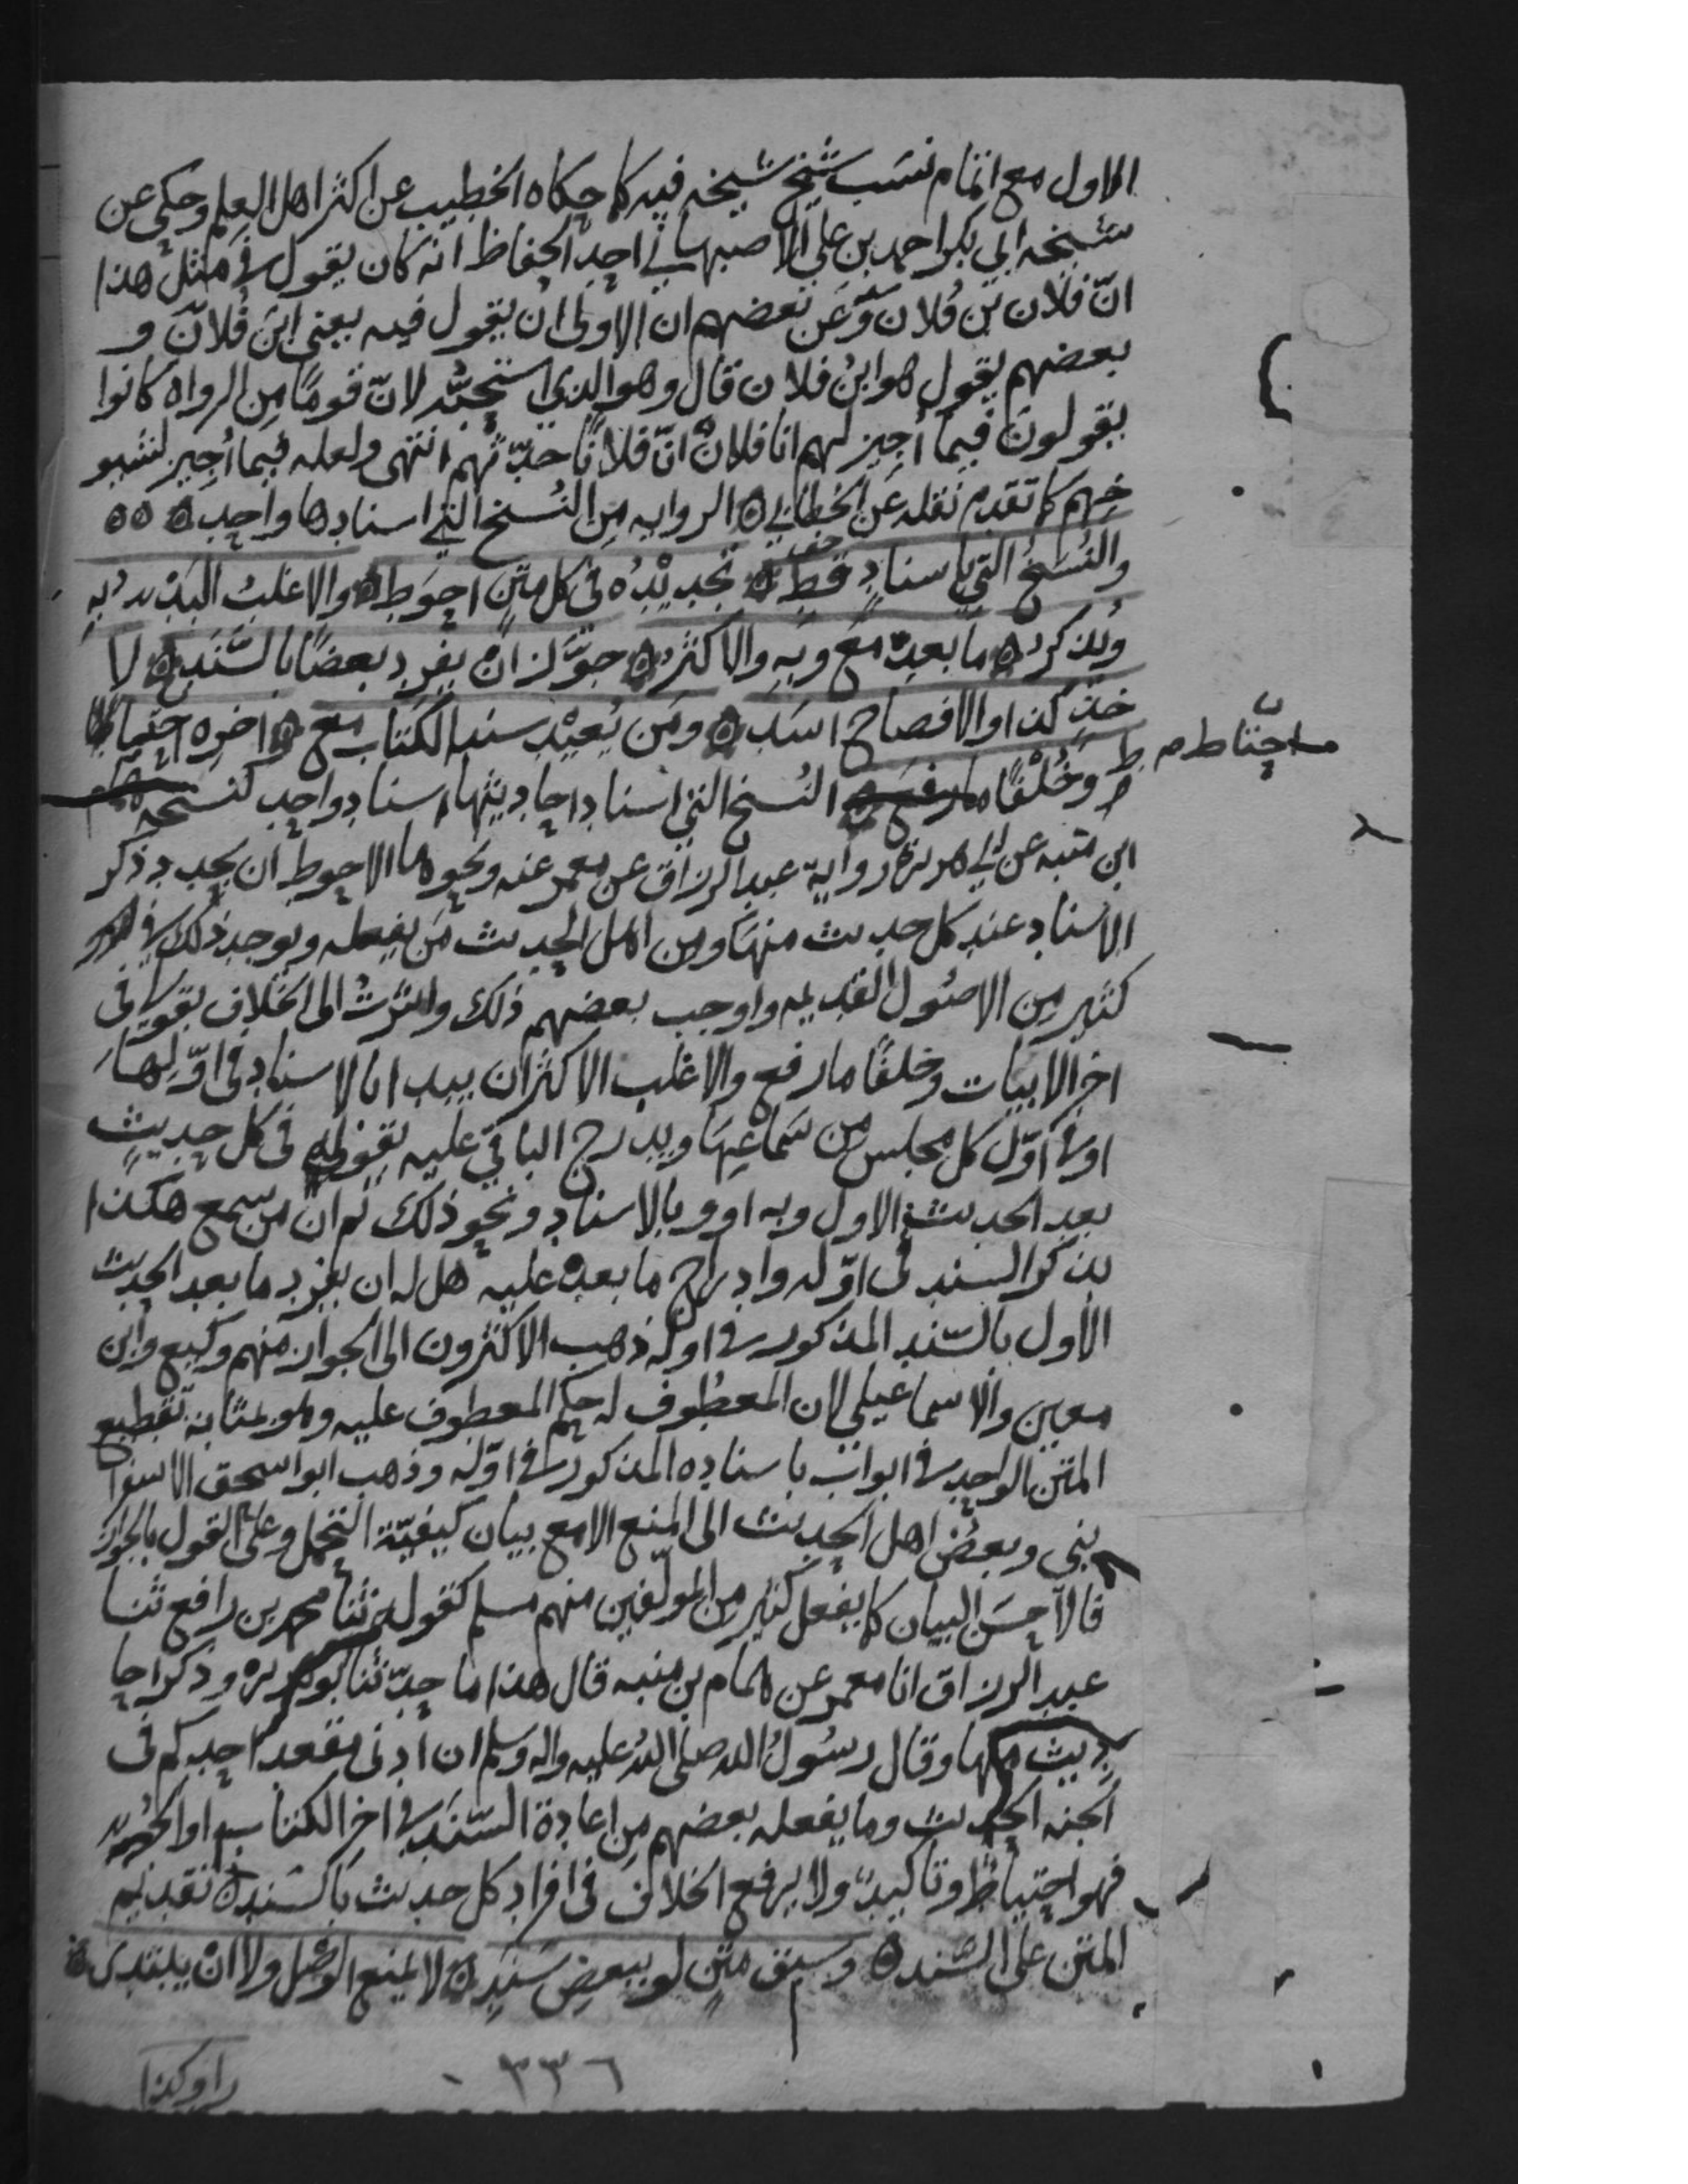 الاول مع اتمام نسب شيخ شيخه فيه كما حكاه الخطيب عن اكثر اهل العلم وحكى عن
شيخه ابي بكر احمد بن علي الاصبهاني احد الحفاظ انه كان يقول في مثل هذا
انّ فلان بن فلان وعن بعضهم ان الاولى ان يقول فيه يعني ابن فلان و
بعضهم يقول هو ابن فلان قال وهو الذي استحبّه لانّ قومًا من الرواه كانوا
يقولون فيما أجيز لهم انا فلان انّ فلانًا حدّثهم انتهى ولعله فيما أجيز لشيو
خهم كما تقدم نقله عن الخطابي ه الروايه من النسخ التي اسنادها واحد ه ٥٥
والنُسَخُ التي باسنادٍ قط ه تجديدُه في كل متنٍ احوط ه والاغلبُ البدْء به
ويذكر ه ما بعده مع وبه والاكثر ه جوّز ان يفرد بعضًا بالسَّنَد ه لا
خذٍ كذا والافصاح اسد ه ومن يُعيد سند الكتاب مع ه اخره احتاط
احتاط ص
وخُلْفًا ما رفع ه النُسخ التي اسناد احاديثها اسناد واحد كنسخة همام
ابن منبه عن ابي هريرة رواية عبد الرزاق عن معمر عنه ونحوها الاحوط ان يجدد ذكر
الاسناد عند كل حديث منها ومن اهل الحديث من يفعله ويوجد ذلك في
كثير من الاصول القديمه واوجب بعضهم ذلك واشرتُ الى الخلاف بقولي في
اخر الابيات وخلفًا ما رفع والاغلب الاكثر ان يبدا بالاسناد في اوّلها
او في اوّل كل مجلس من سماعها ويدرج الباقي عليه بقوله في كل حديثٍ
بعد الحديث الاول وبه او وبالاسناد ونحو ذلك ثم ان من سمع هكذا
بذكر السند في اوّله وادراج ما بعده عليه هل له ان يفرد ما بعد الحديث
الأول بالسّند المذكور في اوله ذهب الاكثرون الى الجواز منهم وكيع وابن
معين والاسماعيلي لان المعطوف له حكم المعطوف عليه وهو بمثابة تقطيع
المتن الواحد في ابواب باسناده المذكور في اوّله وذهب ابو اسحق الاسفرا
يني وبعض اهل الحديث الى المنع الا مع بيان كيفيّة التحمل وعلى القول بالجواز
فالاحسن البيان كما يفعل كثير من المولّفين منهم مسلم كقوله ثنا محمد بن رافع ثنا
عبد الرزاق انا معمر عن همام بن منبه قال هذا ما حدّثنا ابو هريره وذكر احا
ديث منها وقال رسُولُ الله صلى اللهُ عليه واله وسلم ان ادنى مقعد احدكم في
الجنه الحديث وما يفعله بعضهم من اعادة السّند في اخر الكتاب او الجزء
فهو احتياط وتاكيد ولا يرفع الخلاف في افراد كل حديث بالسند ه تقديم
المتن على السّند ه وسبق متنٍ لو ببعض سَندِ ه لا يمنع الوصْل ولا انْ يبتدى ه
راو كذا
٣٣٦